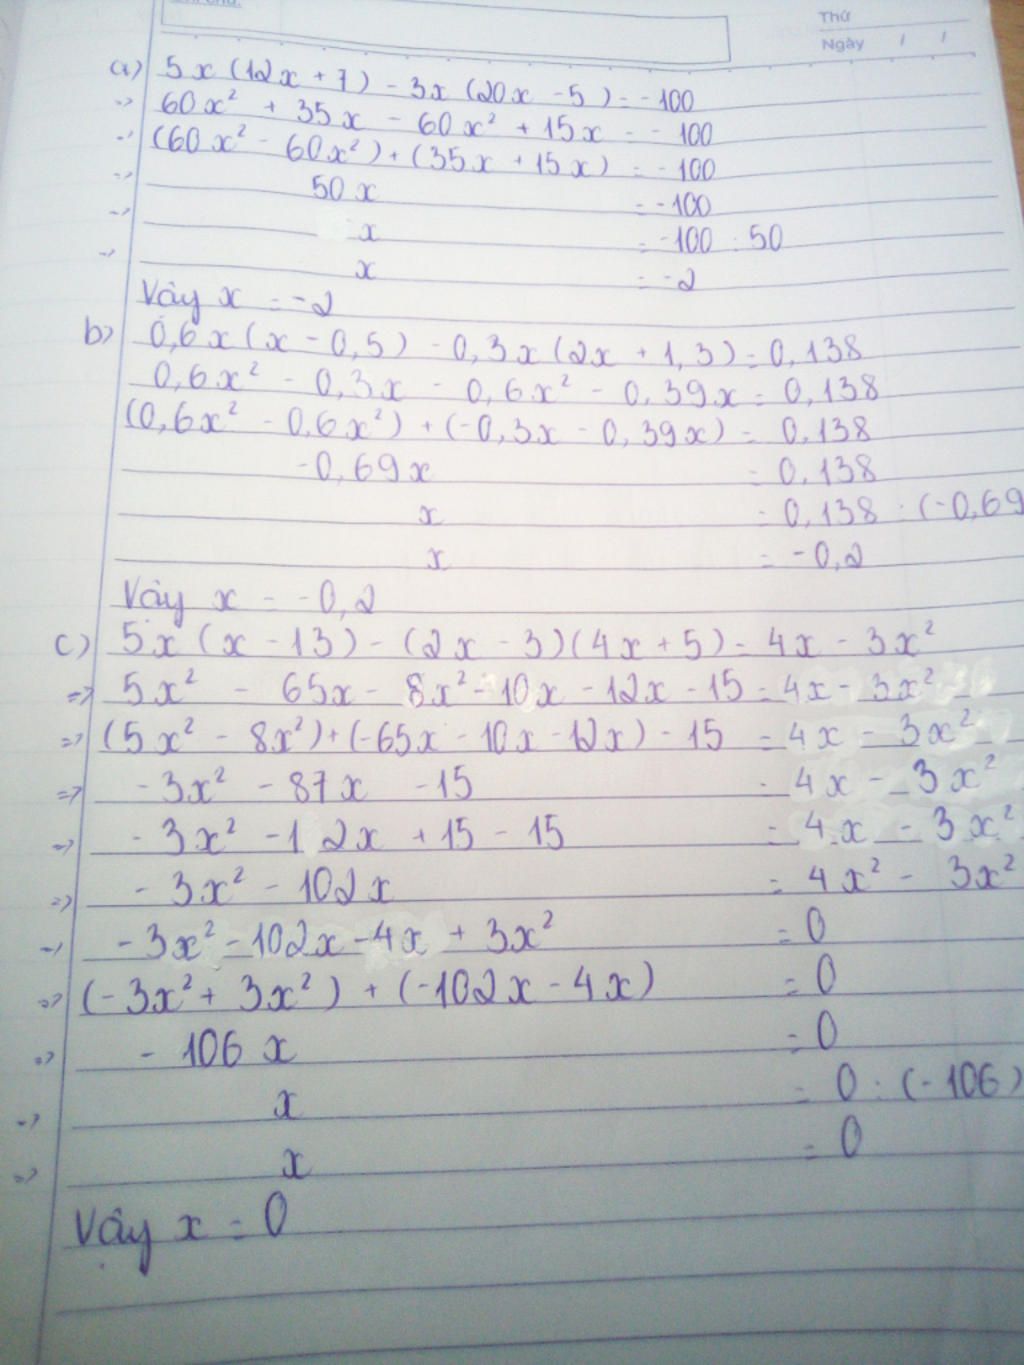 Thứ
Ngày / /
a) 5x(12x + 7) - 3x(20x - 5) = -100
=> 60x² + 35x - 60x² + 15x = -100
=> (60x² - 60x²) + (35x + 15x) = -100
=> 50x = -100
=> x = -100 : 50
=> x = -2
Vậy x = -2
b) 0,6x(x - 0,5) - 0,3x(2x + 1,3) = 0,138
0,6x² - 0,3x - 0,6x² - 0,39x = 0,138
(0,6x² - 0,6x²) + (-0,3x - 0,39x) = 0,138
-0,69x = 0,138
x = 0,138 : (-0,69
x = -0,2
Vậy x = -0,2
c) 5x(x - 13) - (2x - 3)(4x + 5) = 4x - 3x²
=> 5x² - 65x - 8x² - 10x - 12x - 15 = 4x - 3x²
=> (5x² - 8x²) + (-65x - 10x - 12x) - 15 = 4x - 3x²
=> -3x² - 87x - 15 = 4x - 3x²
=> -3x² - 102x + 15 - 15 = 4x - 3x²
=> -3x² - 102x = 4x² - 3x²
=> -3x² - 102x - 4x + 3x² = 0
=> (-3x² + 3x²) + (-102x - 4x) = 0
=> -106x = 0
=> x = 0 : (-106)
=> x = 0
Vậy x = 0